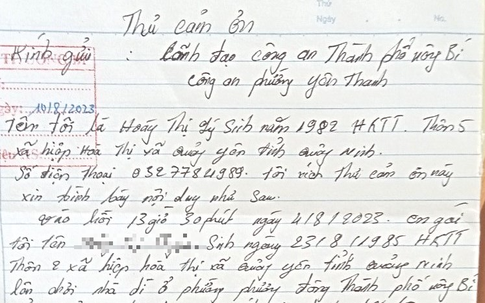 Thứ
Ngày No.
Thư cảm ơn
Kính gửi : Lãnh đạo công an Thành phố uông Bí
công an phường yên Thanh
10/8/2023
Tên tôi là Hoàng Thị Lý Sinh năm 1982 HKTT. Thôn 5
xã hiệp Hoà Thị xã quảng yên tỉnh quảng Ninh.
Số điện thoại 0327784989. tôi viết thư cảm ơn này
xin trình bày nội dung như sau.
vào hồi 13 giờ 30 phút ngày 4/8/2023. con gái
tôi tên Sinh ngày 23/8/1985 HKTT
Thôn 2 xã hiệp hoà thị xã quảng yên tỉnh quảng Ninh
lên chơi nhà dì ở phường phương đông Thành phố uông Bí